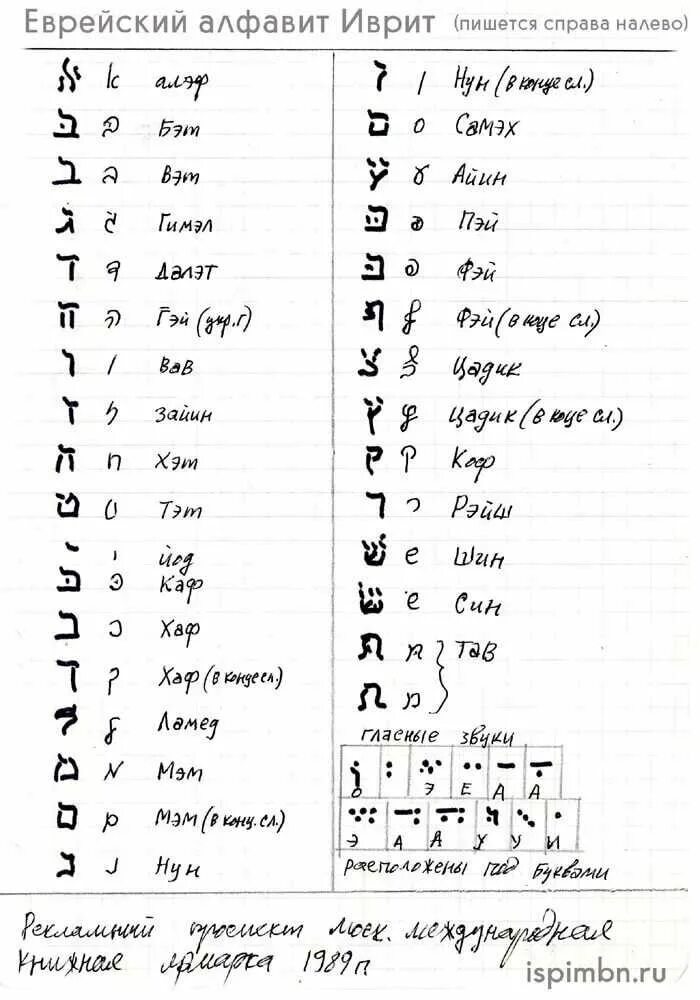 Еврейский алфавит Иврит (пишется справа налево)
א א алэф
בּ בּ Бэт
ב ב Вэт
ג ג Гимэл
ד ד Далэт
ה ה Гэй (укр. г)
ו ו Вав
ז ז Зайин
ח ח Хэт
ט ט Тэт
י י йод
כּ כּ Каф
כ כ Хаф
ך ך Хаф (в конце сл.)
ל ל Ламед
מ מ Мэм
ם ם Мэм (в конц. сл.)
נ נ Нун
ן ן Нун (в конце сл.)
ס ס Самэх
ע ע Айин
פּ פּ Пэй
פ פ Фэй
ף ף Фэй (в конце сл.)
צ צ Цадик
ץ ץ Цадик (в конце сл.)
ק ק Коф
ר ר Рэйш
שׁ ש Шин
שׂ ש Син
ת ת Тав
ת ת
гласные звуки
О Э Е А А
Э А А У У И
расположены под буквами
Рекламный проспект Моск. международная
книжная ярмарка 1989 г.
ispimbn.ru